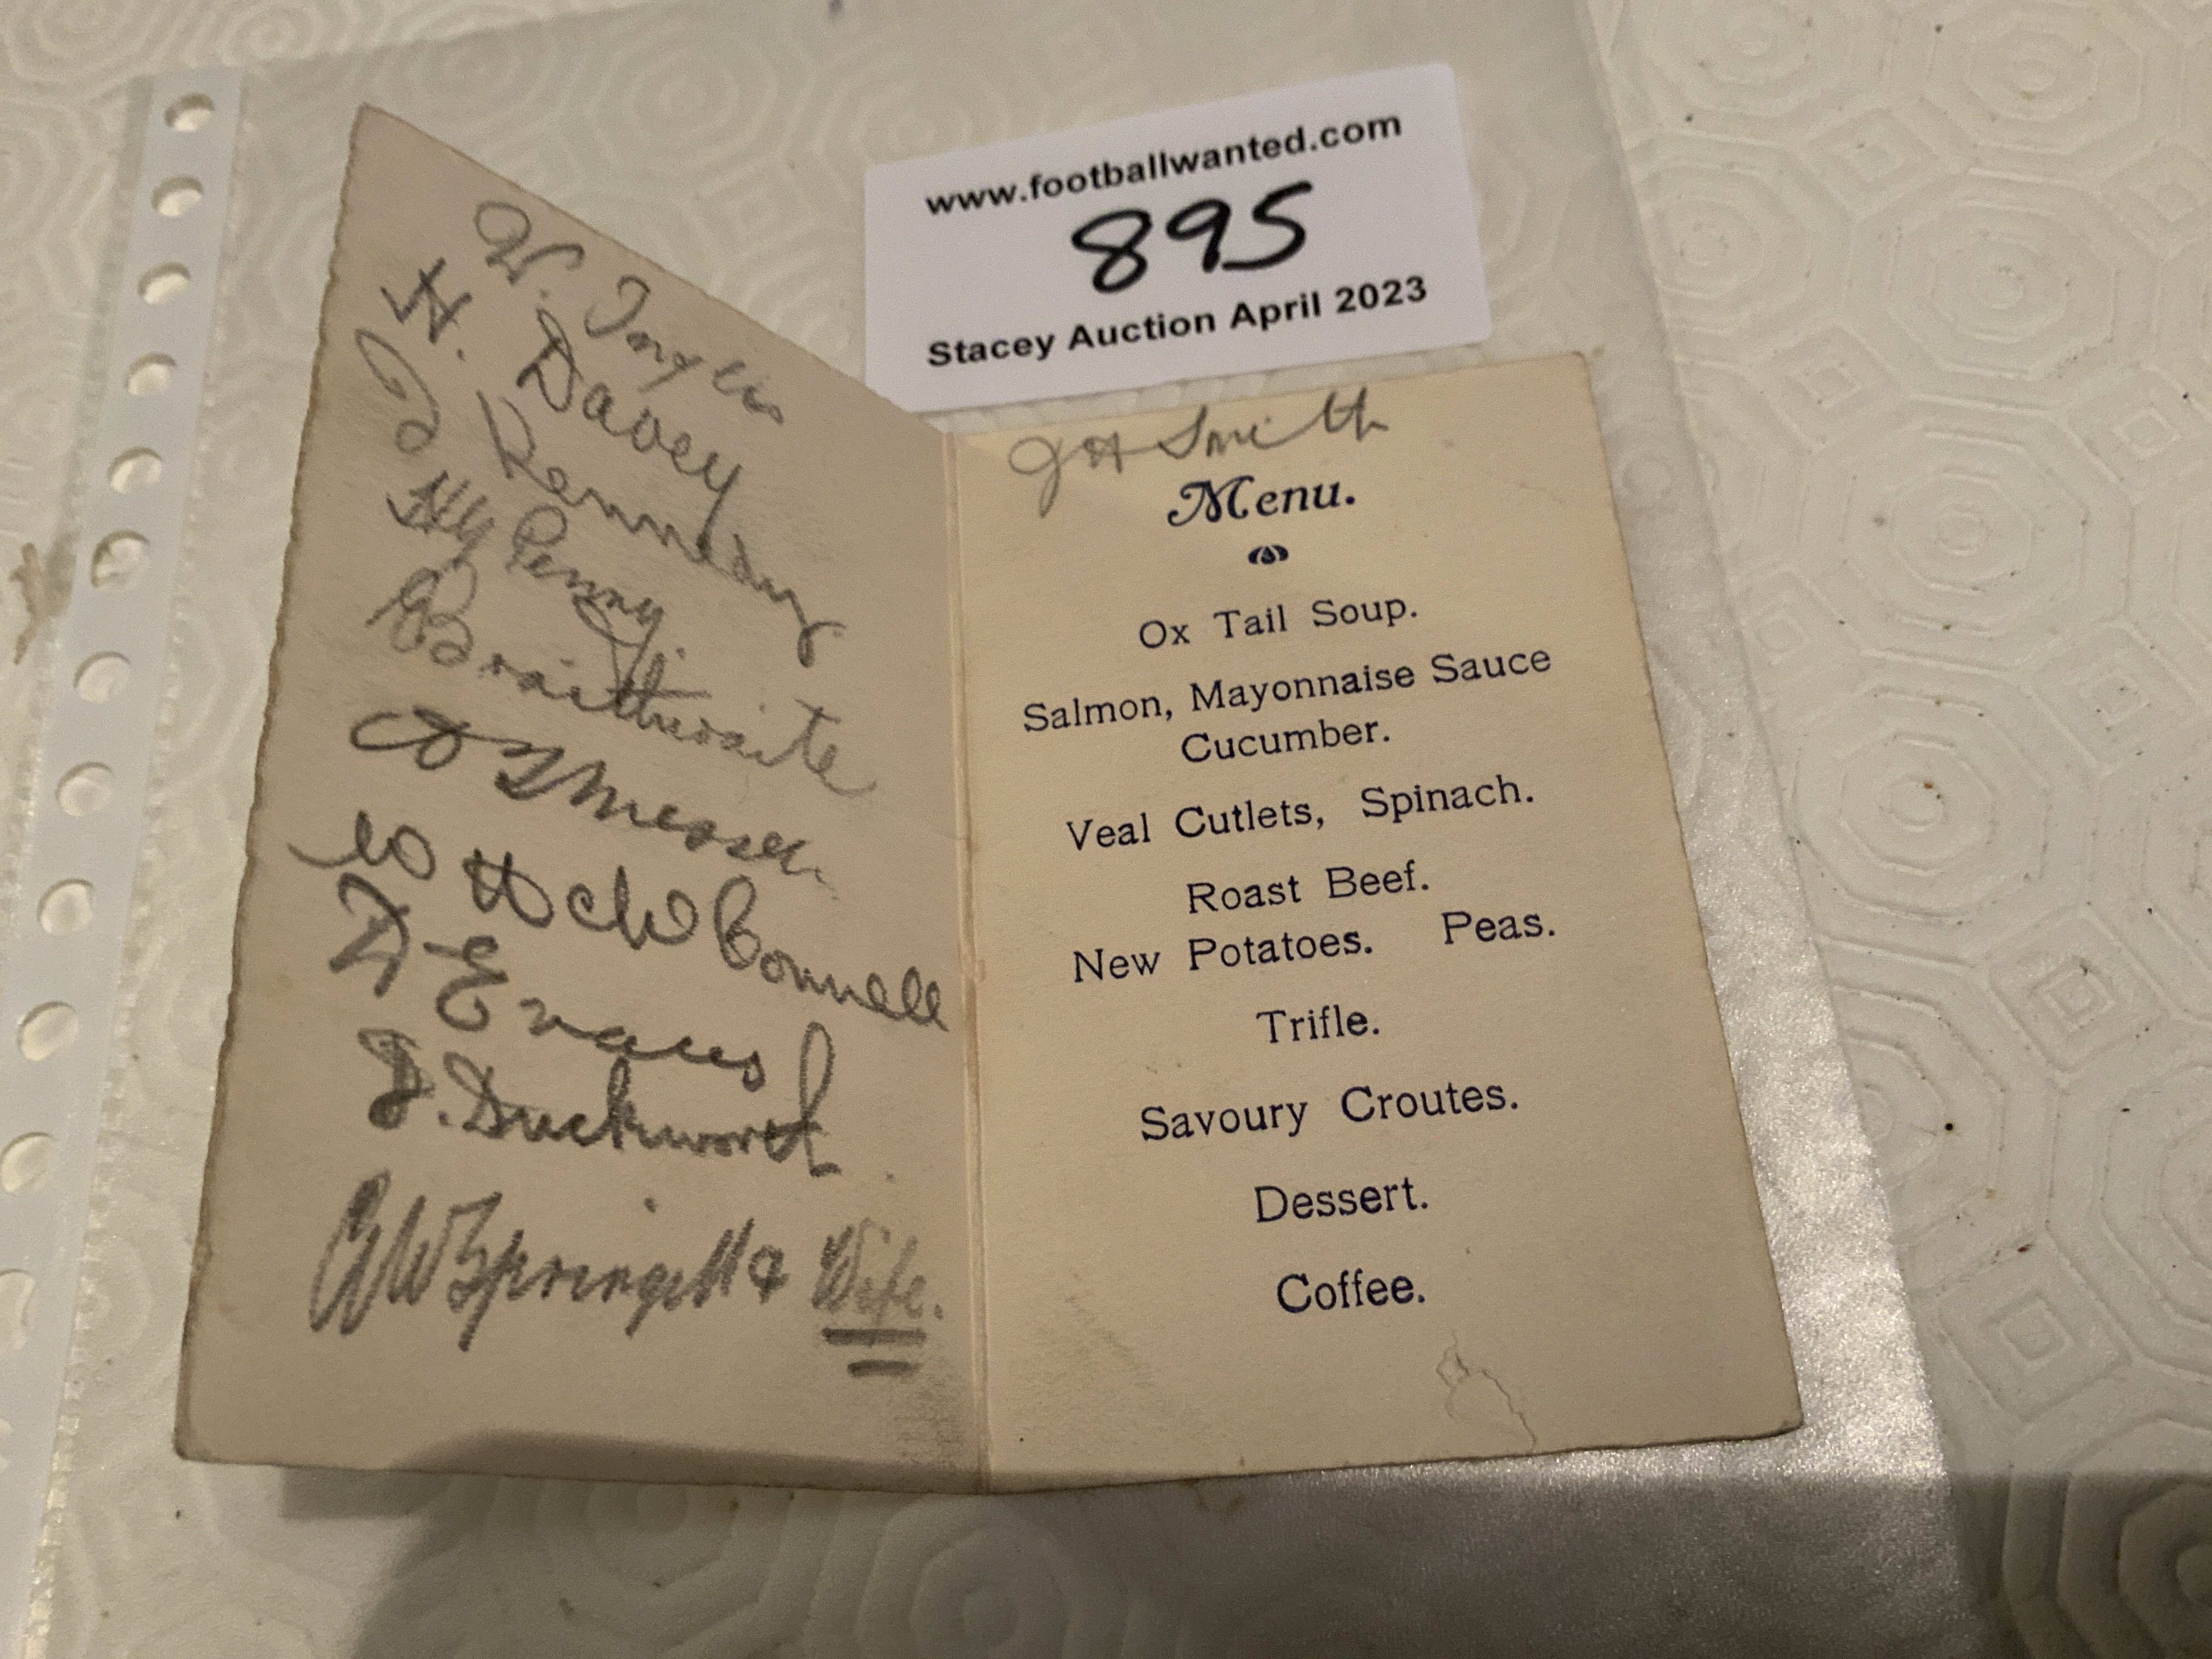 www.footballwanted.com
895
Stacey Auction April 2023
W. Inglis
H. Davey
J Kennedy
Hy Penny.
Braithwaite
A T Messer.
W H McConnell
D Evans
F. Duckworth
G W Springett & Wife.
J H Smith
Menu.
Ox Tail Soup.
Salmon, Mayonnaise Sauce
Cucumber.
Veal Cutlets, Spinach.
Roast Beef.
New Potatoes. Peas.
Trifle.
Savoury Croutes.
Dessert.
Coffee.